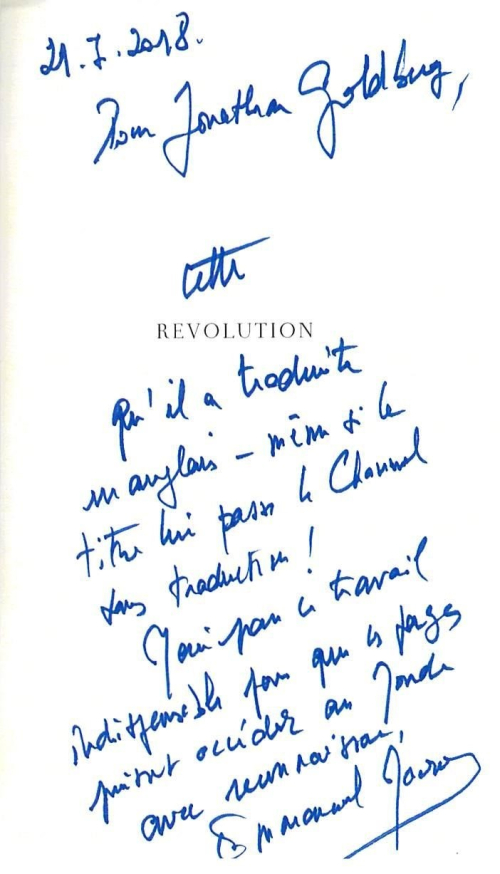 21.7.2018.
Pour Jonathan Goldberg,
cette
REVOLUTION
qu'il a traduite
en anglais – même si le
titre lui passe le Channel
sans traduction !
Merci pour ce travail
indispensable pour que ces pages
puissent accéder au Monde
avec reconnaissance,
Emmanuel Macron